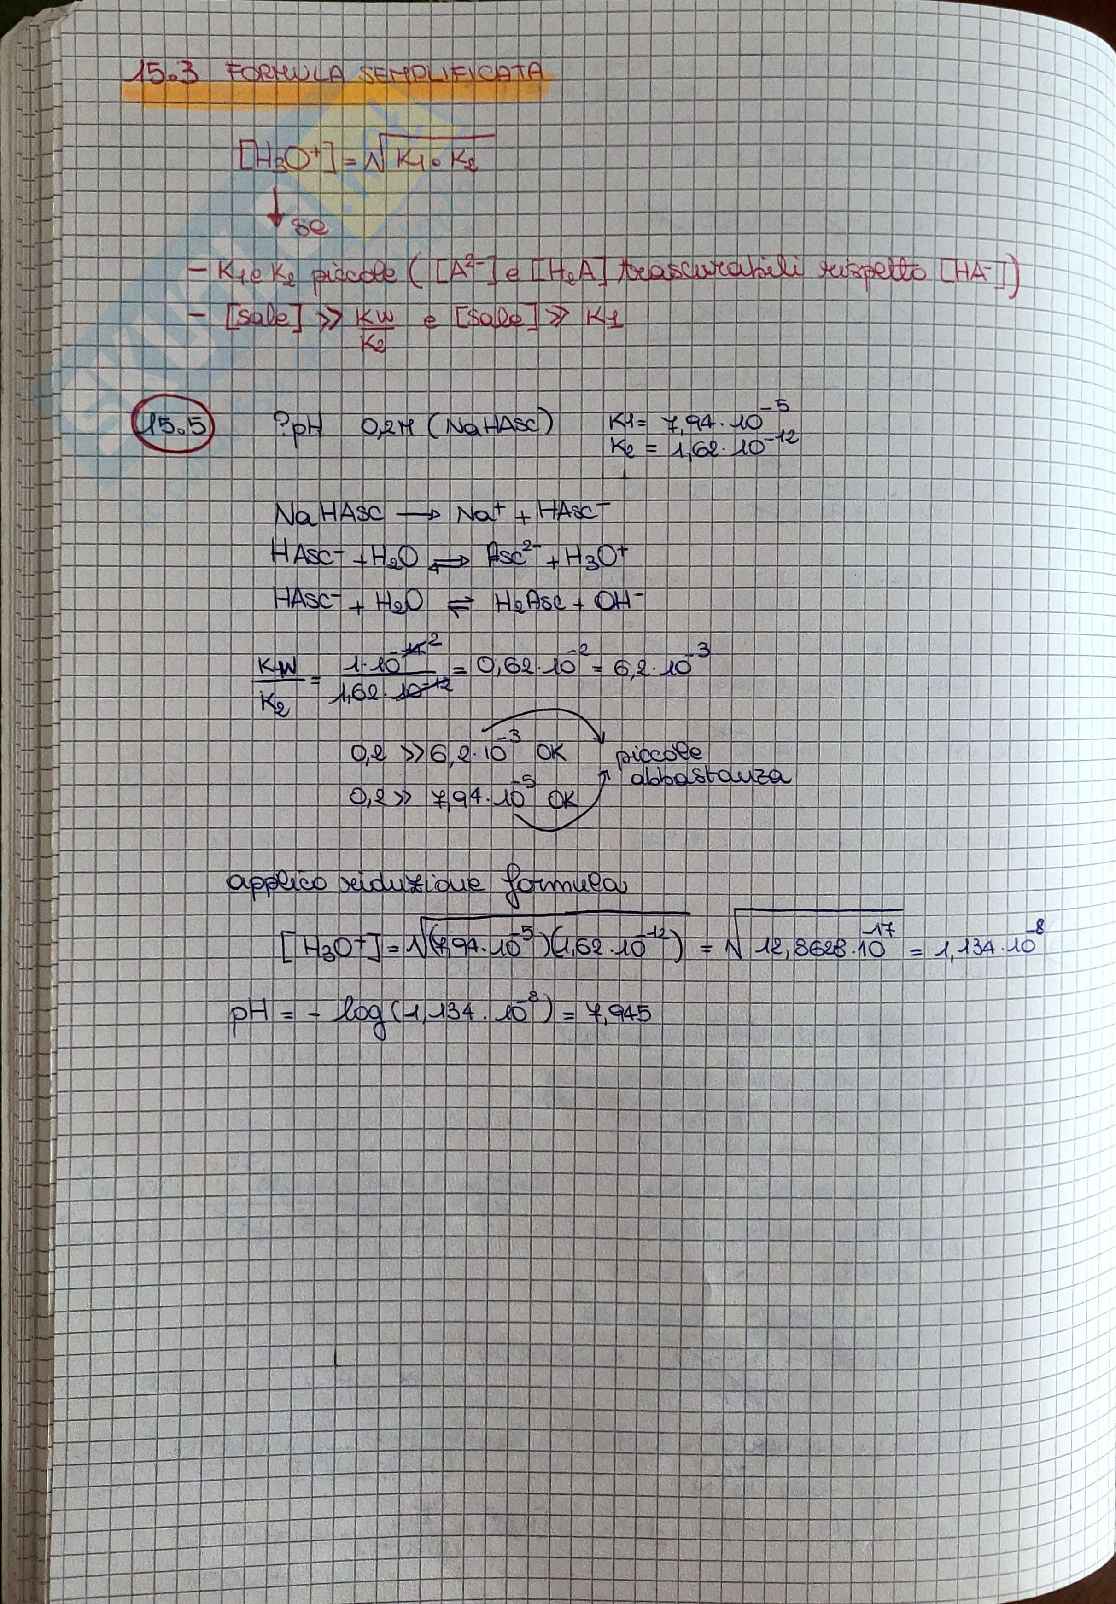 15.3 FORMULA SEMPLIFICATA
[H3O⁺] = √K1·K2
↓ se
- K1 e K2 piccole ([A²⁻] e [H2A] trascurabili rispetto [HA⁻])
- [sale] >> Kw/K2 e [sale] >> K1
15.5 ?pH 0,2M (NaHAsc) K1 = 7,94·10⁻⁵
K2 = 1,62·10⁻¹²
NaHAsc → Na⁺ + HAsc⁻
HAsc⁻ + H2O ⇌ Asc²⁻ + H3O⁺
HAsc⁻ + H2O ⇌ H2Asc + OH⁻
Kw/K2 = 1·10⁻¹⁴ ² / 1,62·10⁻¹² = 0,62·10⁻² = 6,2·10⁻³
0,2 >> 6,2·10⁻³ OK piccole
abbastanza
0,2 >> 7,94·10⁻⁵ OK
applico riduzione formula
[H3O⁺] = √(7,94·10⁻⁵)(1,62·10⁻¹²) = √12,8628·10⁻¹⁷ = 1,134·10⁻⁸
pH = - log(1,134·10⁻⁸) = 7,945